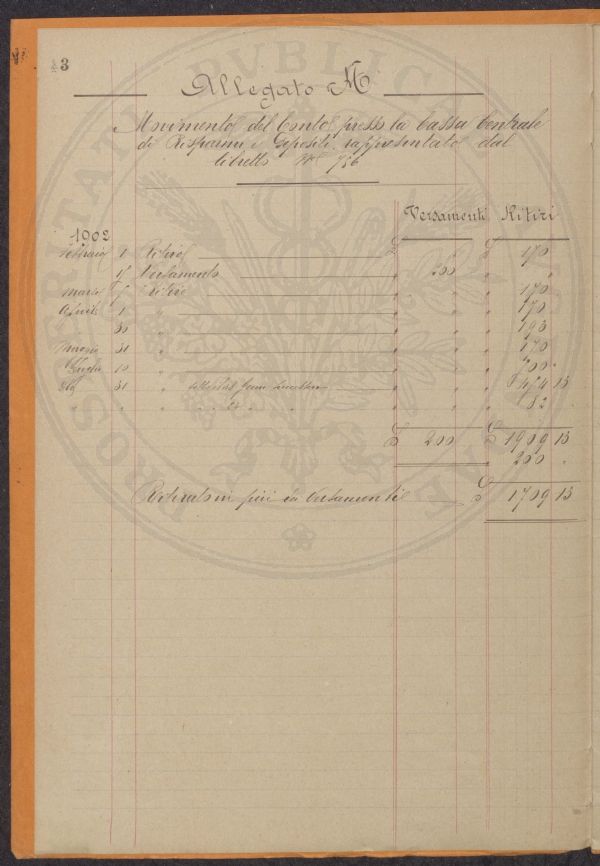 43
Allegato M
Movimento del Conto presso la Cassa Centrale
di Risparmi e Depositi rappresentato dal
libretto N° 756
Versamenti Ritiri
1902
Febbraio 1 Ritiro £ " £ 170
Versamento " 200 " "
Marzo Ritiro " " 170
Aprile 1 " " " 170
30 " " " 193
Maggio 31 " " " 170
10 " " "
31 " " " 13
" " " " " " 32 "
£ 200 £ 1909 13
200 "
in più in Versamenti £ 1709 13
PROSPERITATI PUBLICAE